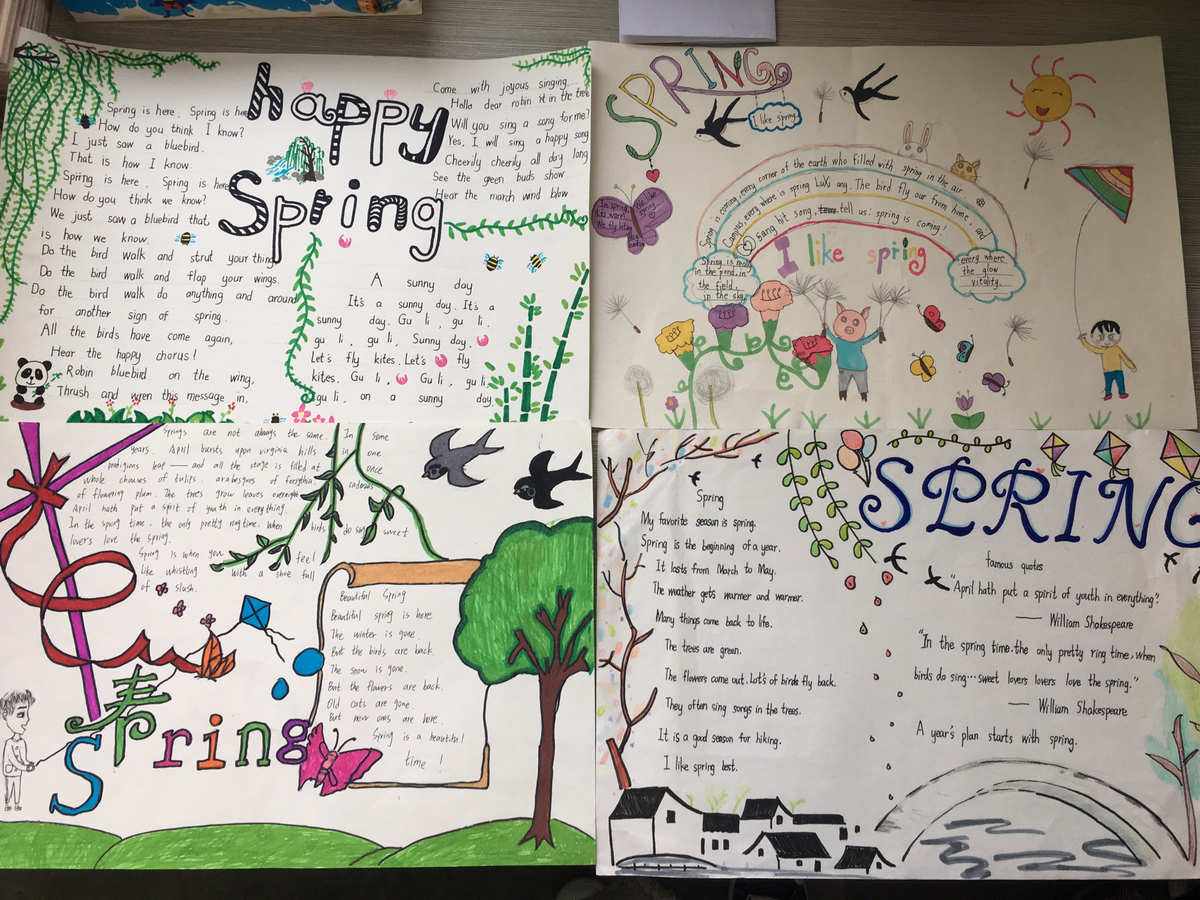 happy
Spring
Spring is here. Spring is here
How do you think I know?
I just saw a bluebird.
That is how I know.
Spring is here. Spring is here
How do you think we know?
We just saw a bluebird that
is how we know.
Do the bird walk and strut your thing
Do the bird walk and flap your wings.
Do the bird walk do anything and around
for another sign of spring.
All the birds have come again,
Hear the happy chorus!
Robin bluebird on the wing,
Thrush and wren this message in.
Come with joyous singing.
Hello dear robin in the tree
Will you sing a song for me?
Yes, I will sing a happy song
Cheerily cheerily all day long
See the green buds show
Hear the march wind blow
A sunny day
It's a sunny day. It's a
sunny day. Gu li, gu li.
gu li, gu li, Sunny day.
Let's fly kites. Let's fly
kites. Gu li, Gu li, gu li,
gu li, on a sunny day
SPRING
I like spring
Spring is coming, every corner of the earth who filled with spring in the air
Campus, every where is spring LuXi any. The bird fly our from home, and
Sang hit song, tell us: spring is coming!
I like spring
Spring is really
in the pond, in
the field,
in the sky
every where
the glow
vitality.
In spring,
its warm.
We fly kites
We like
spring
springs are not always the same In some
years. April bursts upon virginia hills in one
and all the stage is filled at once
whole chouses of tulips. arabesques of
of flowering plum. The trees grow leaves overnight
April hath put a spirit of youth in everything.
In the spring time. the only pretty ring time. When birds do sing sweet
lovers love the spring.
Spring is when you feel
like whistling with a shoe full
of slush.
Beautiful Spring
Beautiful spring is here
The winter is gone
But the birds are back
The snow is gone.
But the flowers are back.
Old cats are gone
But new ones are here.
Spring is a beautiful
time!
春
Spring
SPRING
Spring
My favorite season is spring.
Spring is the beginning of a year.
It lasts from March to May.
The weather gets warmer and warmer.
Many things come back to life.
The trees are green.
The flowers come out. Lots of birds fly back.
They often sing songs in the trees.
It is a good season for hiking.
I like spring best.
famous quotes
"April hath put a spirit of youth in everything".
— William Shakespeare
"In the spring time. the only pretty ring time, when
birds do sing... sweet lovers lovers love the spring."
— William Shakespeare
A year's plan starts with spring.